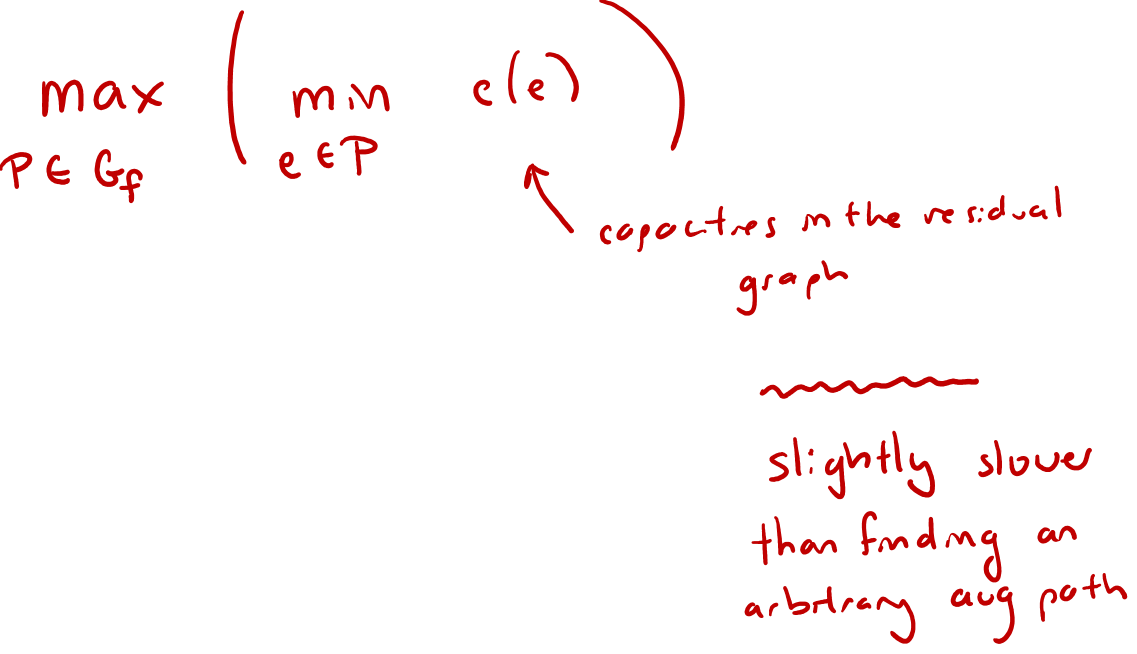 max ( min c(e) )
P ∈ G_f e ∈ P
capacities in the residual
graph
slightly slower
than finding an
arbitrary aug path